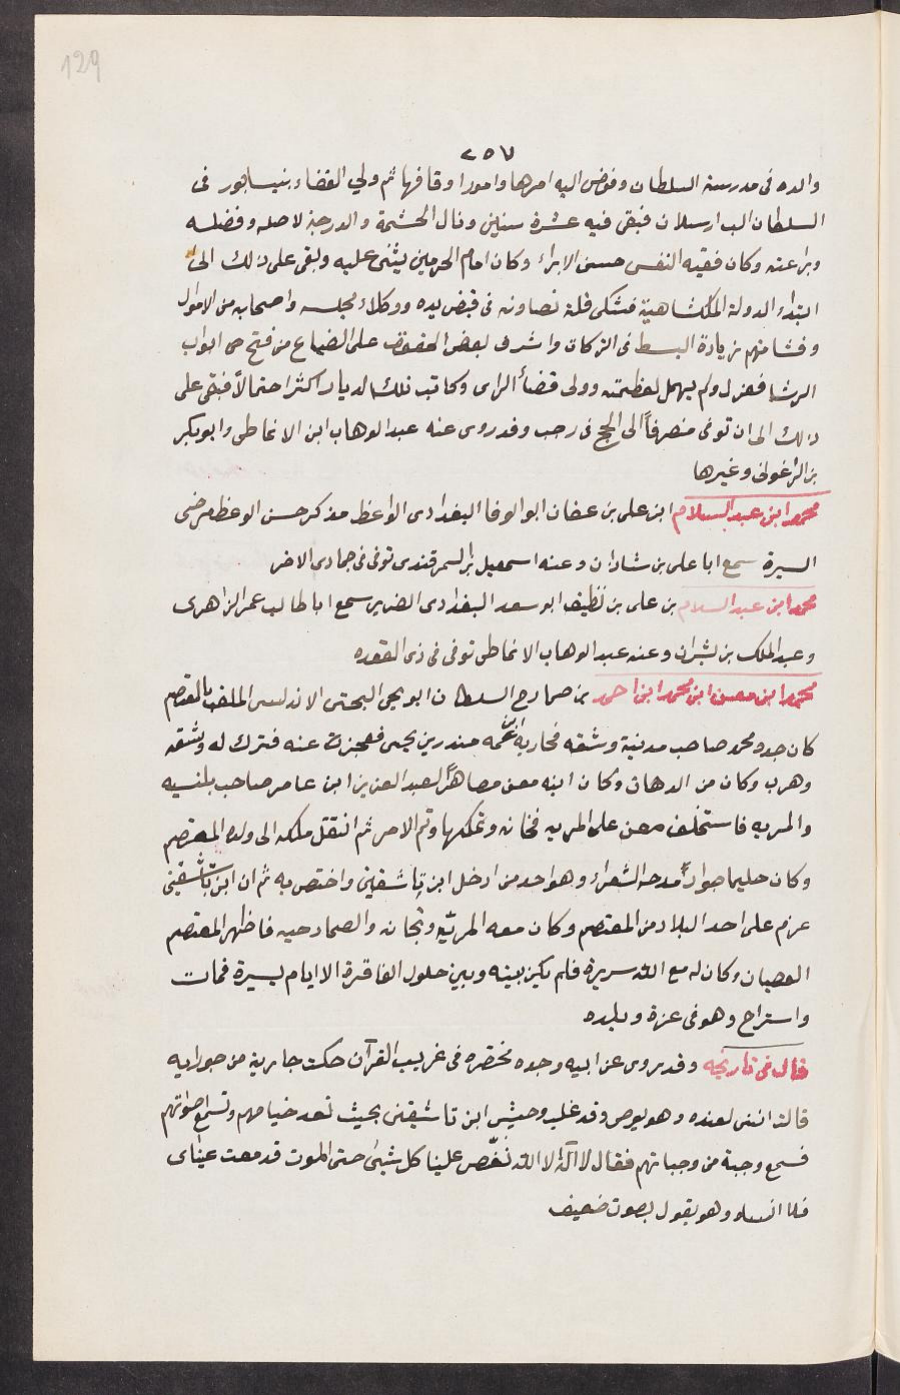 129
٢٥٧
والده فى مدرسة السلطان وفوض اليه امرها وامورا وقافها ثم ولي القضاء بنيسابور فى
السلطان الب ارسلان فبقى فيه عشرة سنين ونال الحشمة والدرجة لاصله وفضله
وبراعته وكان فقيه النفس حسن الايراد وكان امام الحرمين يثنى عليه وبقى على ذلك الى
ابتداء الدولة الملكشاهية فشكى قلة تصاونه فى قبض يده ووكلاء مجلسه واصحابه من الاموال
وفشا منهم زيادة البسط فى التركات واشرف بعض الحقوق على الضياع من فتح ابواب
الرشا فعزل ولم يهمل لعظمته وولى قضأ الرى وكانت تلك الديار اكثر احتمالاً فبقى على
ذلك الى ان توفى منصرفاً الى الحج فى رجب وقد روى عنه عبد الوهاب ابن الانماطى وابو بكر
بن الزاغونى وغيرها
محمد ابن عبد السلام ابن على بن عفان ابو الوفا البغدادى الواعظ مذكر حسن الوعظ مرضى
السيرة سمع ابا على بن شاذان وعنه اسمعيل بن السمرقندى توفى فى جمادى الاخر
محمد ابن عبد السلام بن على بن نظيف ابو سعد البغدادى الضرير سمع ابا طالب عمر الزاهرى
وعبد الملك بن بشران وعنه عبد الوهاب الانماطى توفى فى ذى القعده
محمد ابن معن ابن محمد ابن احمد بن صمادح السلطان ابو يحى البحتى الاندلسى الملقب بالمعتصم
كان جده محمد صاحب مدينة وشقه فحاربه ابن عمه منذر بن يحيى فعجزت عنه فترك له وشقه
وهرب وكان من الدهات وكان ابنه معن مصاهراً لعبد العزيز ابن عامر صاحب بلنسيه
والمريه فاستخلف معن على المريه فخانه وتملكها وتم الامر ثم انتقل ملكه الى ولده المعتصم
وكان حليما جواداً مدحه الشعراء وهو احد من ادخل ابن تاشفين واختص به ثم ان ابن تاشفين
عزم على اخذ البلاد من المعتصم وكان معه المريّه وبجانه والصمادحيه فاظهر المعتصم
العصيان وكان له مع الله سريرة فلم يكن بينه وبين حلول الفاقرة الا ايام يسيرة فمات
واستراح وهو فى عزة وبلده
قال فى تاريخه وقد يروى عن ابيه وجده مختصره فى غريب القرآن حكت جارية من جواريه
قالت اننى لعنده وهو يوصى وقد غلب وجيش ابن تاشفين بحيث تعد خيامهم وتسمع اصواتهم
فسمع وجبة من وجباتهم فقال لا اله الا الله نغّص علينا كل شئ حتى الموت قدمعت عيناى
فلا انساه وهو يقول بصوت ضعيف